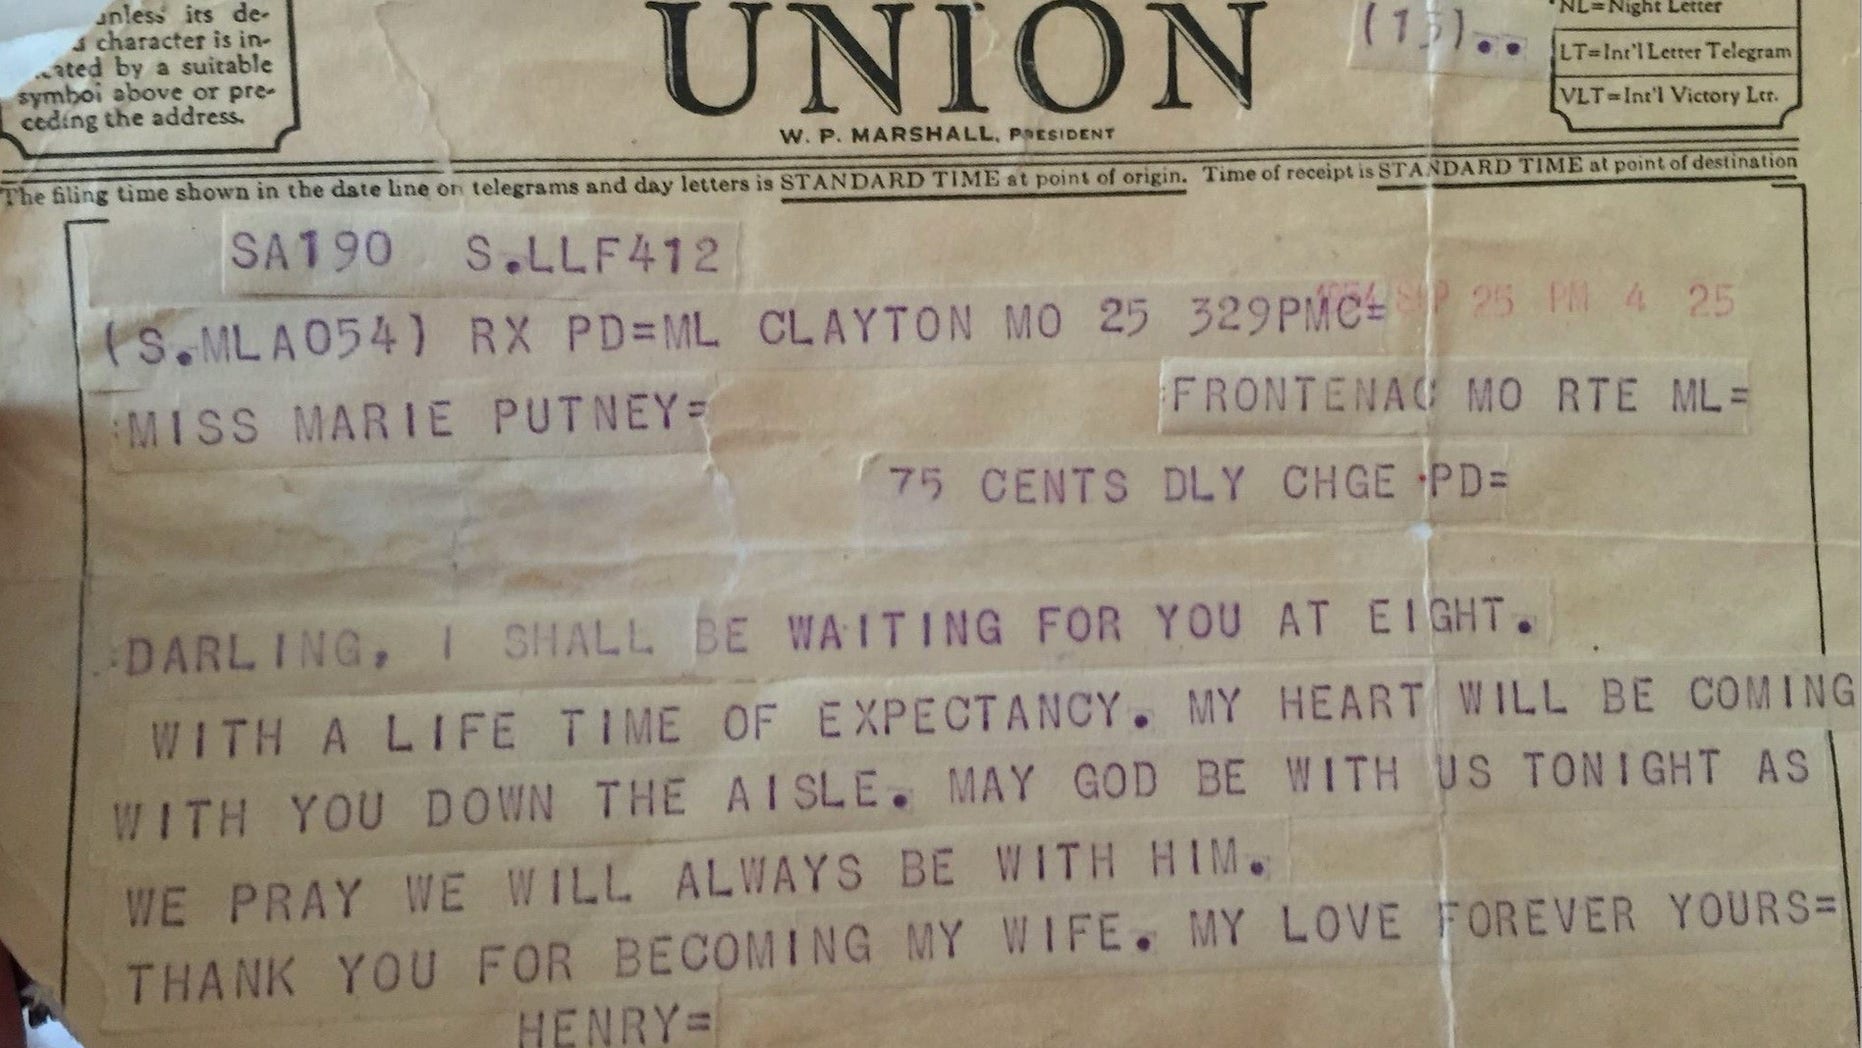 unless its de-
character is in-
cated by a suitable
symbol above or pre-
ceding the address.
UNION
W. P. MARSHALL, PRESIDENT
(15)..
NL=Night Letter
LT=Int'l Letter Telegram
VLT=Int'l Victory Ltr.
The filing time shown in the date line on telegrams and day letters is STANDARD TIME at point of origin. Time of receipt is STANDARD TIME at point of destination
SA190 S.LLF412
(S.MLA054) RX PD=ML CLAYTON MO 25 329PMC=
1954 SEP 25 PM 4 25
:MISS MARIE PUTNEY=
:FRONTENAC MO RTE ML=
75 CENTS DLY CHGE PD=
:DARLING, I SHALL BE WAITING FOR YOU AT EIGHT.
WITH A LIFE TIME OF EXPECTANCY. MY HEART WILL BE COMING
WITH YOU DOWN THE AISLE. MAY GOD BE WITH US TONIGHT AS
WE PRAY WE WILL ALWAYS BE WITH HIM.
THANK YOU FOR BECOMING MY WIFE. MY LOVE FOREVER YOURS=
HENRY=